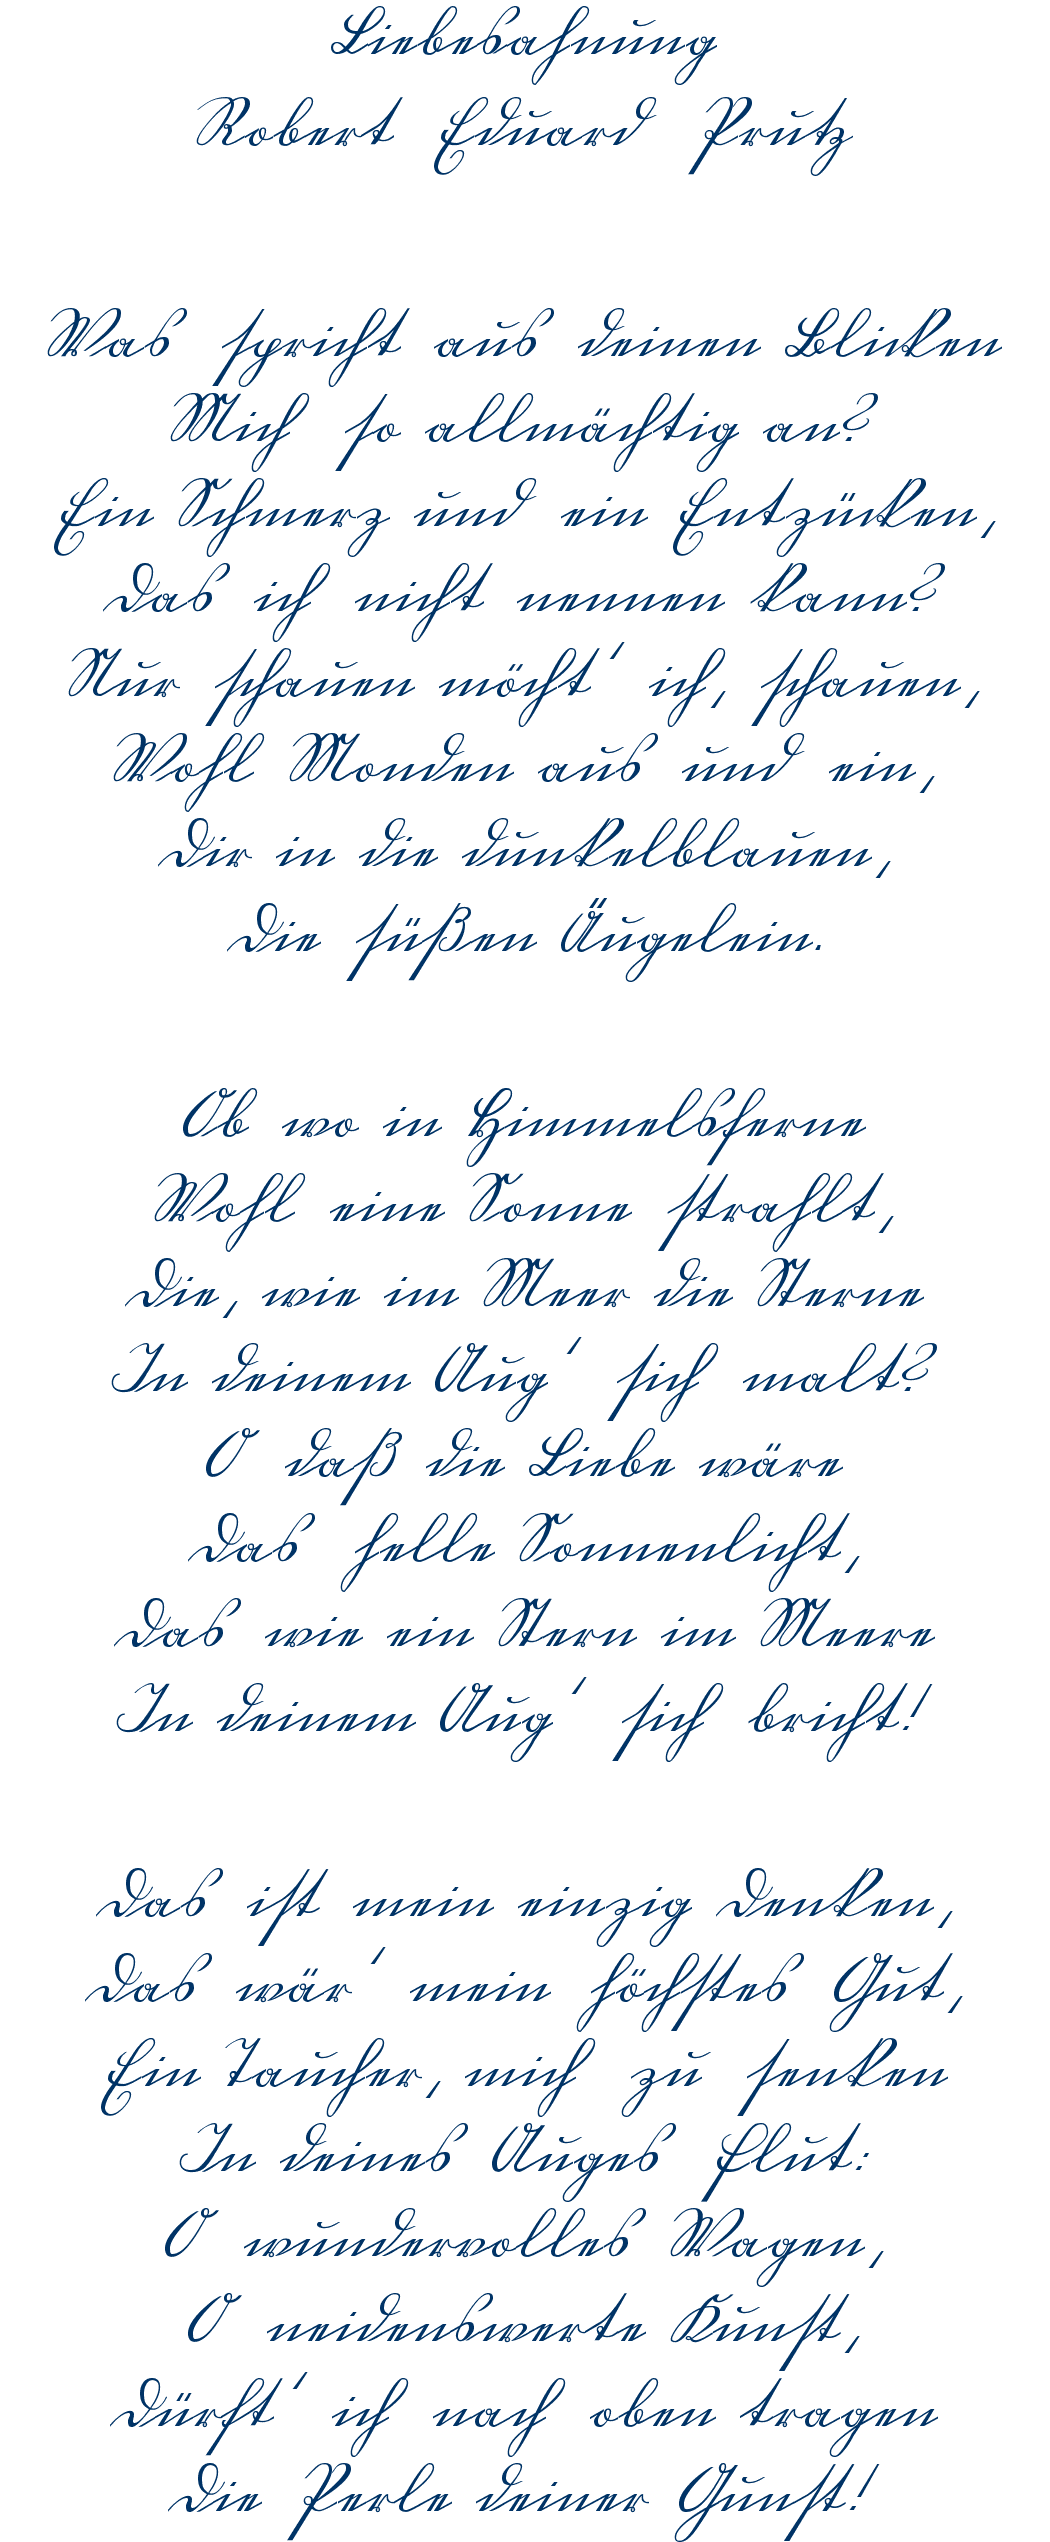 Liebesahnung
Robert Eduard Prutz
Was spricht aus deinen Blicken
Mich so allmächtig an?
Ein Schmerz und ein Entzücken,
Das ich nicht nennen kann?
Nur schauen möcht' ich, schauen,
Wohl Monden aus und ein,
Dir in die dunkelblauen,
Die süßen Äugelein.
Ob wo in Himmelsferne
Wohl eine Sonne strahlt,
Die, wie im Meer die Sterne
In deinem Aug' sich malt?
O daß die Liebe wäre
Das helle Sonnenlicht,
Das wie ein Stern im Meere
In deinem Aug' sich bricht!
Das ist mein einzig Denken,
Das wär' mein höchstes Gut,
Ein Taucher, mich zu senken
In deines Auges Flut:
O wundervolles Wagen,
O neidenswerte Kunst,
Dürft' ich nach oben tragen
Die Perle deiner Gunst!